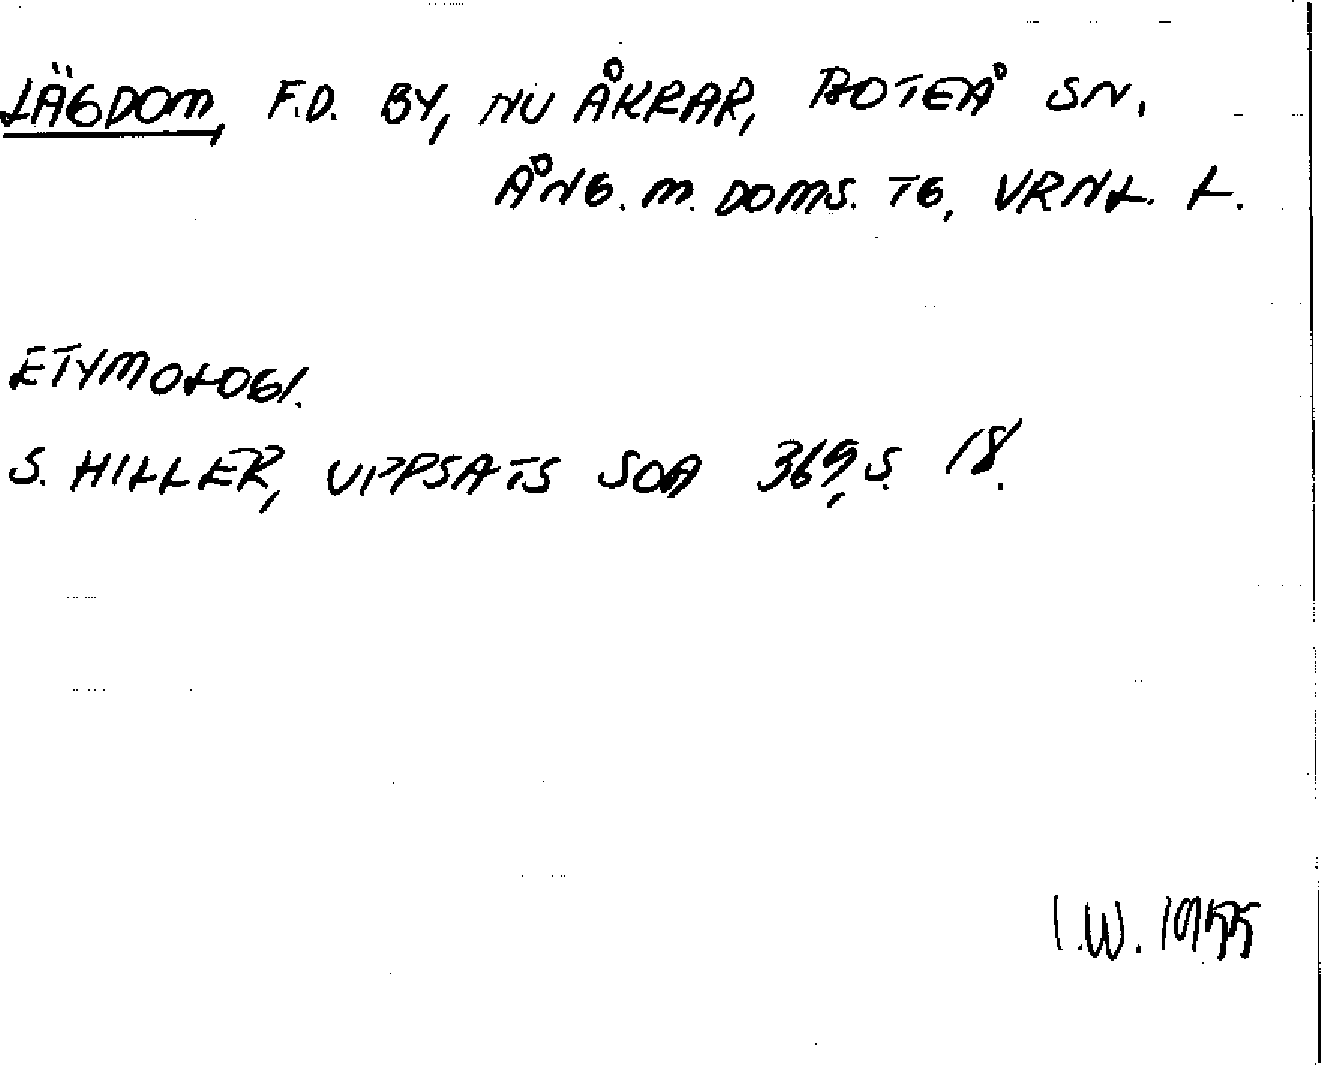 LÄGDOM, F.D. BY, NU ÅKRAR, BOTEÅ SN.
ÅNG. M. DOMS. TG, VRNL. L.
ETYMOLOGI.
S. HILLER, UPPSATS SOA 369, S. 18.
I.W. 1955